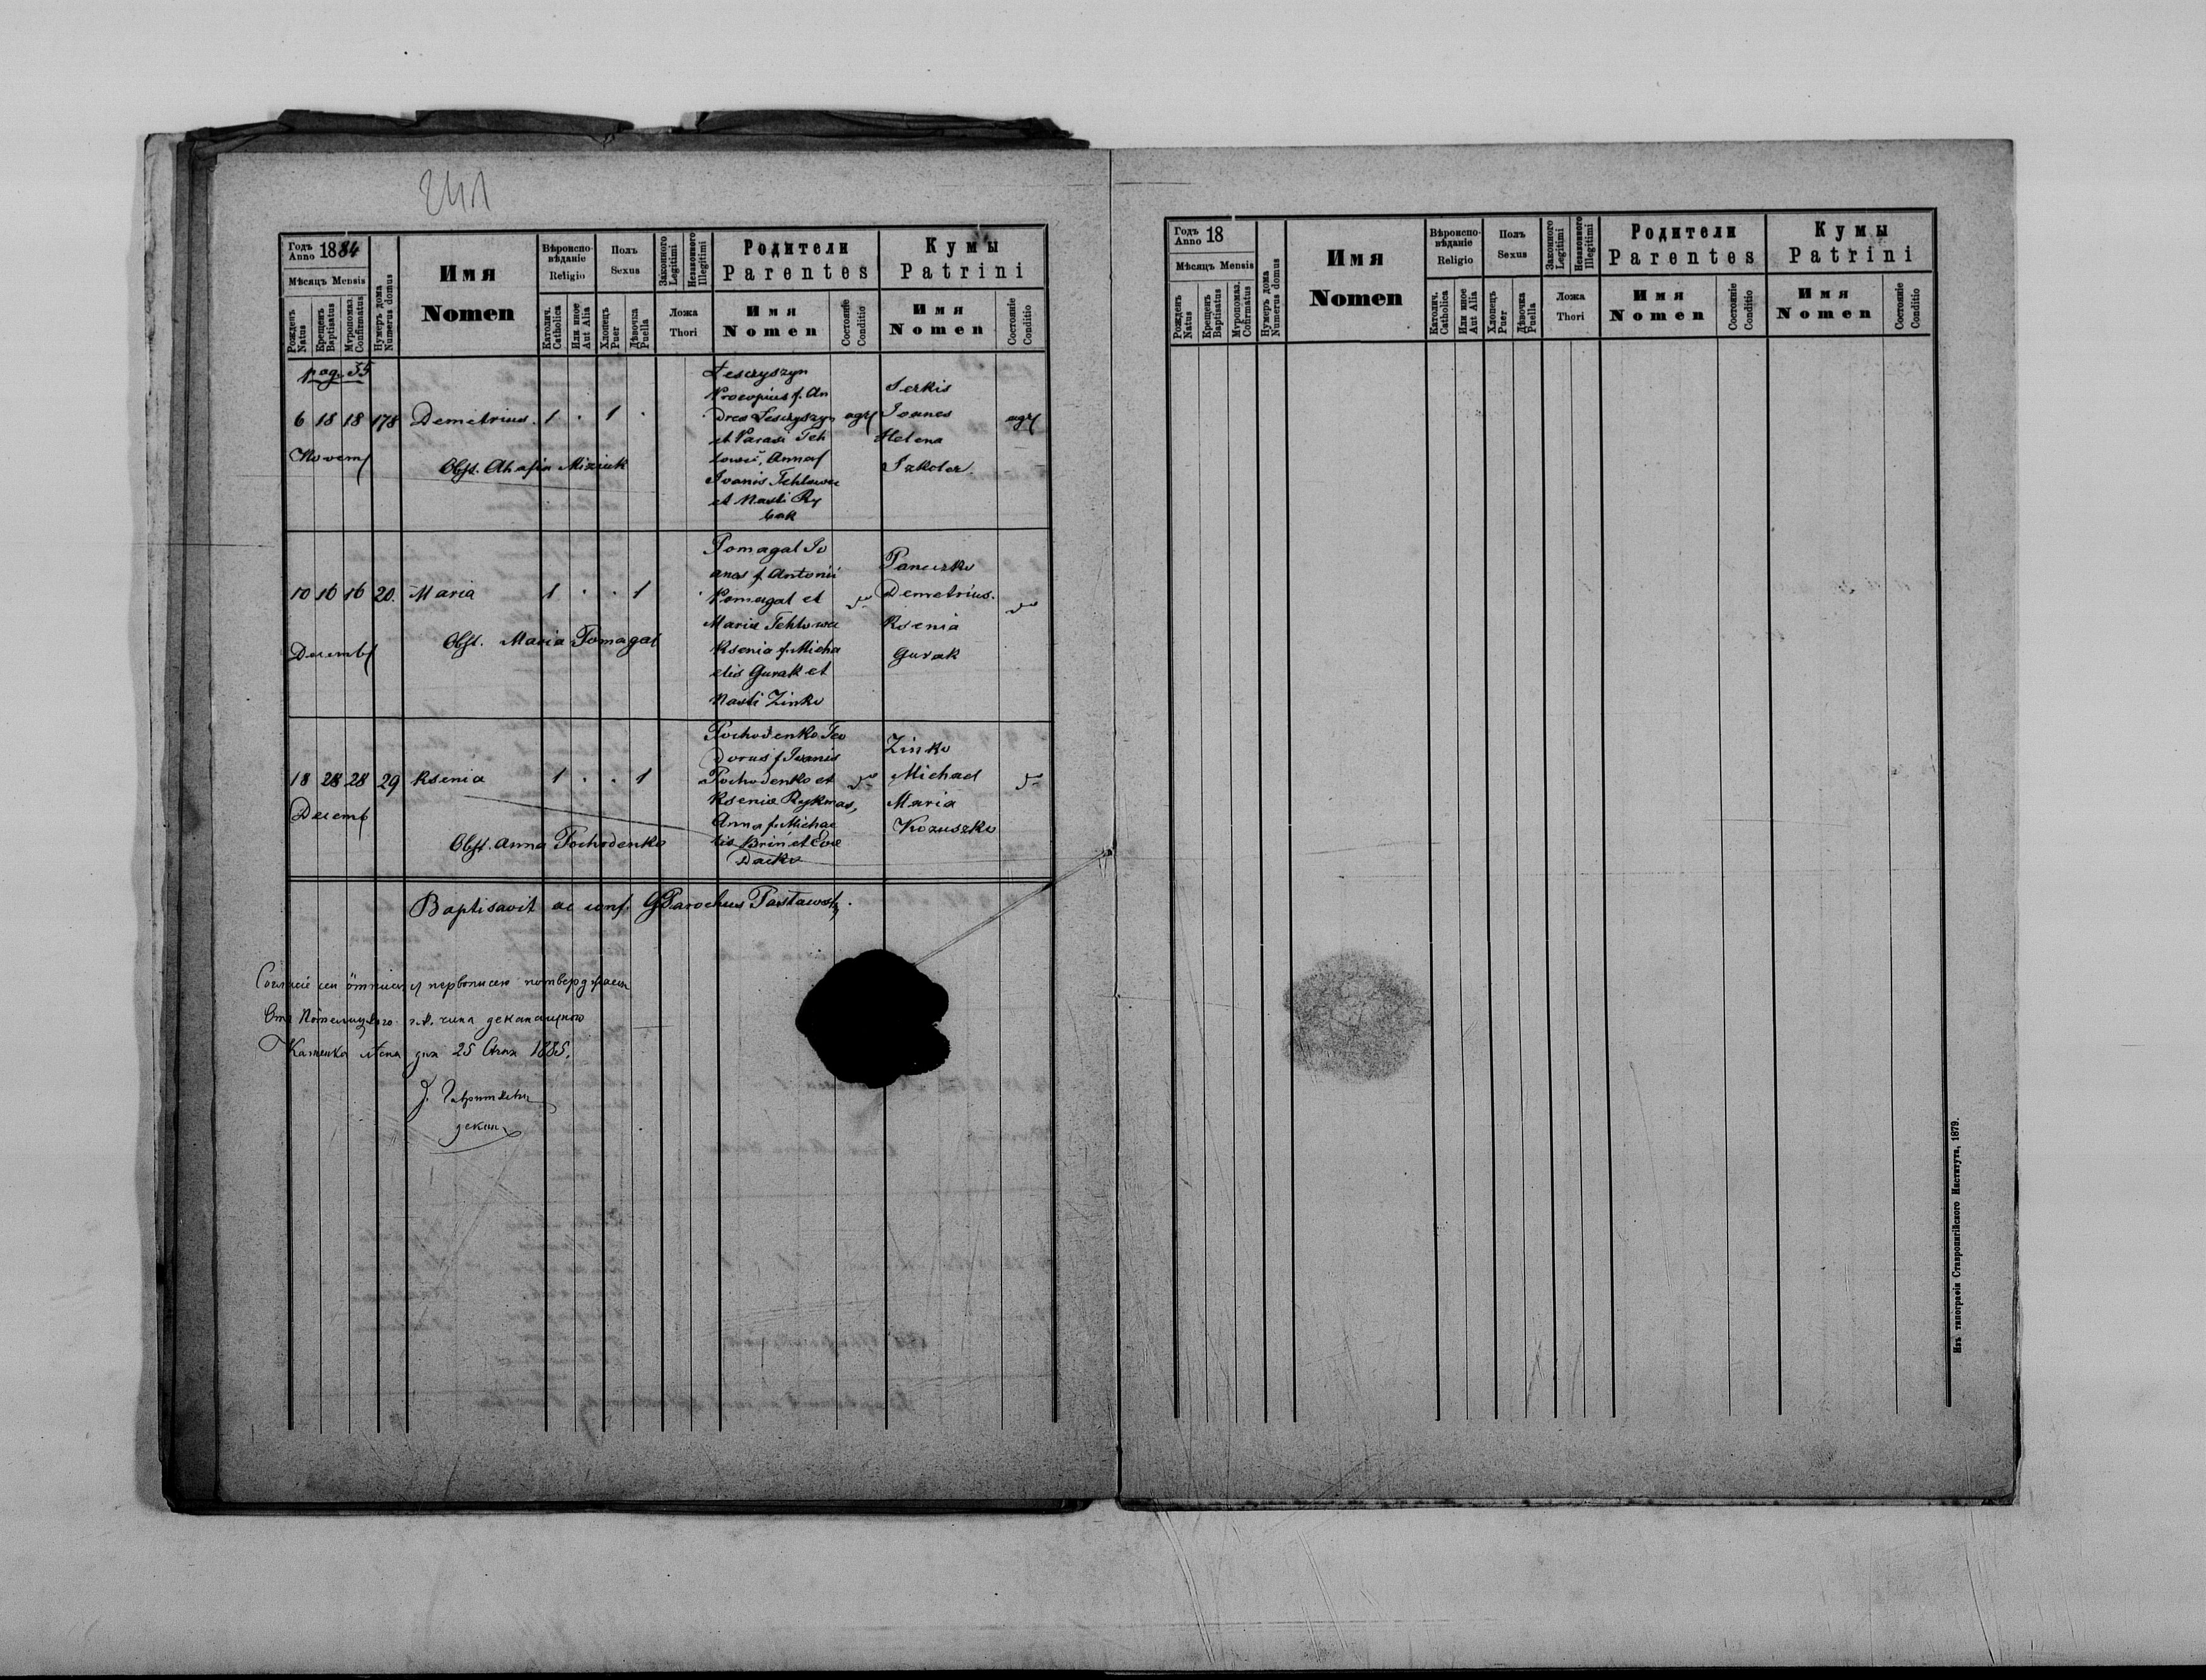 241
Годъ Anno 1884
Мѣсяцъ Mensis
Рожденъ Natus
Крещенъ Baptisatus
Мѵропомаз. Confirmatus
Нумеръ дома Numerus domus
Имя
Nomen
Вѣроиспо-
вѣданіе
Religio
Католич. Catholica
Или иное Aut Alia
Полъ
Sexus
Хлопецъ Puer
Дѣвочка Puella
Законного Legitimi
Незаконного Illegitimi
Ложа
Thori
Родители
Parentes
Имя
Nomen
Состояніе Conditio
Кумы
Patrini
Имя
Nomen
Состояніе Conditio
pag. 35
6 18 18 178 Demetrius. 1 . 1 .
Novemb
Obst. Ahafia Miziuk
Leszczyszyn
Procopius f. An
drea Leszczyszyn
et Parasi Teh
Joanis Tehlowec
et Nasti Ry
bak
agr
Serkis
Joanes
Helena
Szkoler.
agr
10 16 16 20. Maria 1 . . 1
Decemb
Obst. Maria Pomagal
Pomagal Jo
anes f. Antonii
Pomagal et
Maria Tehlowec
Ksenia f. Micha
elis Gurak et
Nasti Zinko
Paneczko
Demetrius.
Ksenia
Gurak
18 28 28 29 Ksenia 1 . . 1
Decemb
Obst. Anna Pochodenko
Pochodenko Teo
dorus f. Joanis
Pochodenko et
Anna f. Michae
lis Brin et Eve
Dacko
Zinko
Michael
Maria
Kozuszko
Baptisavit ac conf. GParochus Pastawsky.
первописею потверджаєся
Каменка лѣсна дня 25 1885.
декан
Годъ Anno 18
Мѣсяцъ Mensis
Рожденъ Natus
Крещенъ Baptisatus
Мѵропомаз. Confirmatus
Нумеръ дома Numerus domus
Имя
Nomen
Вѣроиспо-
вѣданіе
Religio
Католич. Catholica
Или иное Aut Alia
Полъ
Sexus
Хлопецъ Puer
Дѣвочка Puella
Законного Legitimi
Незаконного Illegitimi
Ложа
Thori
Родители
Parentes
Имя
Nomen
Состояніе Conditio
Кумы
Patrini
Имя
Nomen
Состояніе Conditio
Изъ типографіи Ставропигійского Института, 1879.